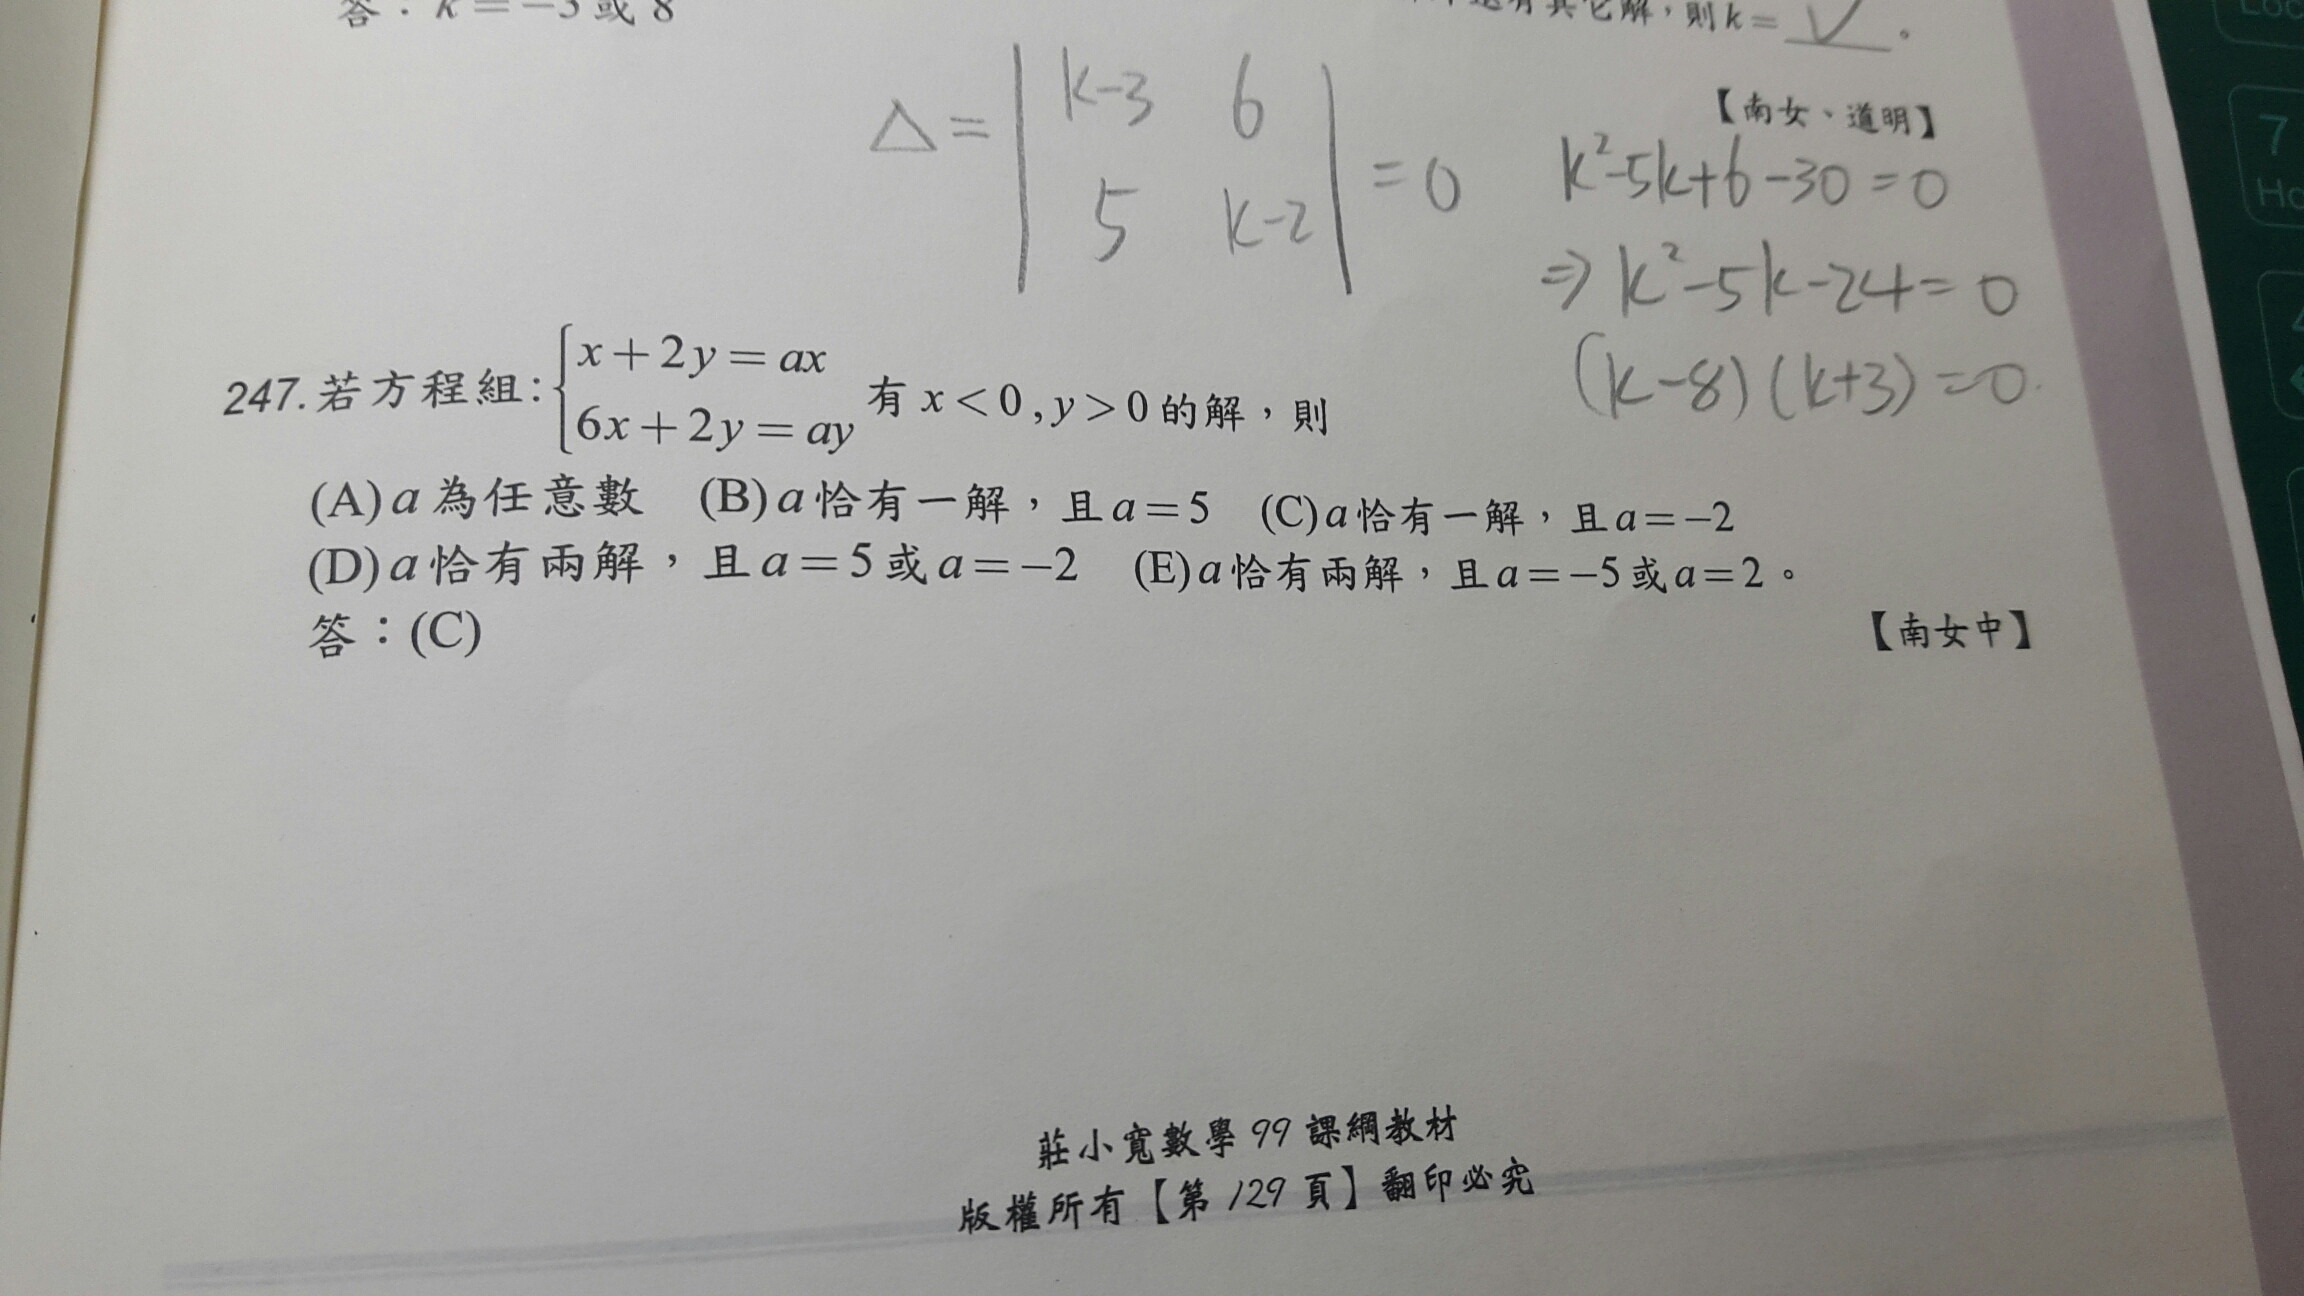 答：k＝－3或 8
還有其它解，則k＝
【南女、道明】
△＝| k-3 6 |
| 5 k-2 | ＝0
k²-5k+6-30＝0
⇒k²-5k-24＝0
(k-8)(k+3)＝0
247.若方程組:{x＋2y＝ax
6x＋2y＝ay 有 x＜0,y＞0的解，則
(A)a為任意數 (B)a恰有一解，且a＝5 (C)a恰有一解，且a＝－2
(D)a恰有兩解，且a＝5或a＝－2 (E)a恰有兩解，且a＝－5或a＝2。
答：(C)
【南女中】
莊小寬數學99課綱教材
版權所有【第129頁】翻印必究
7